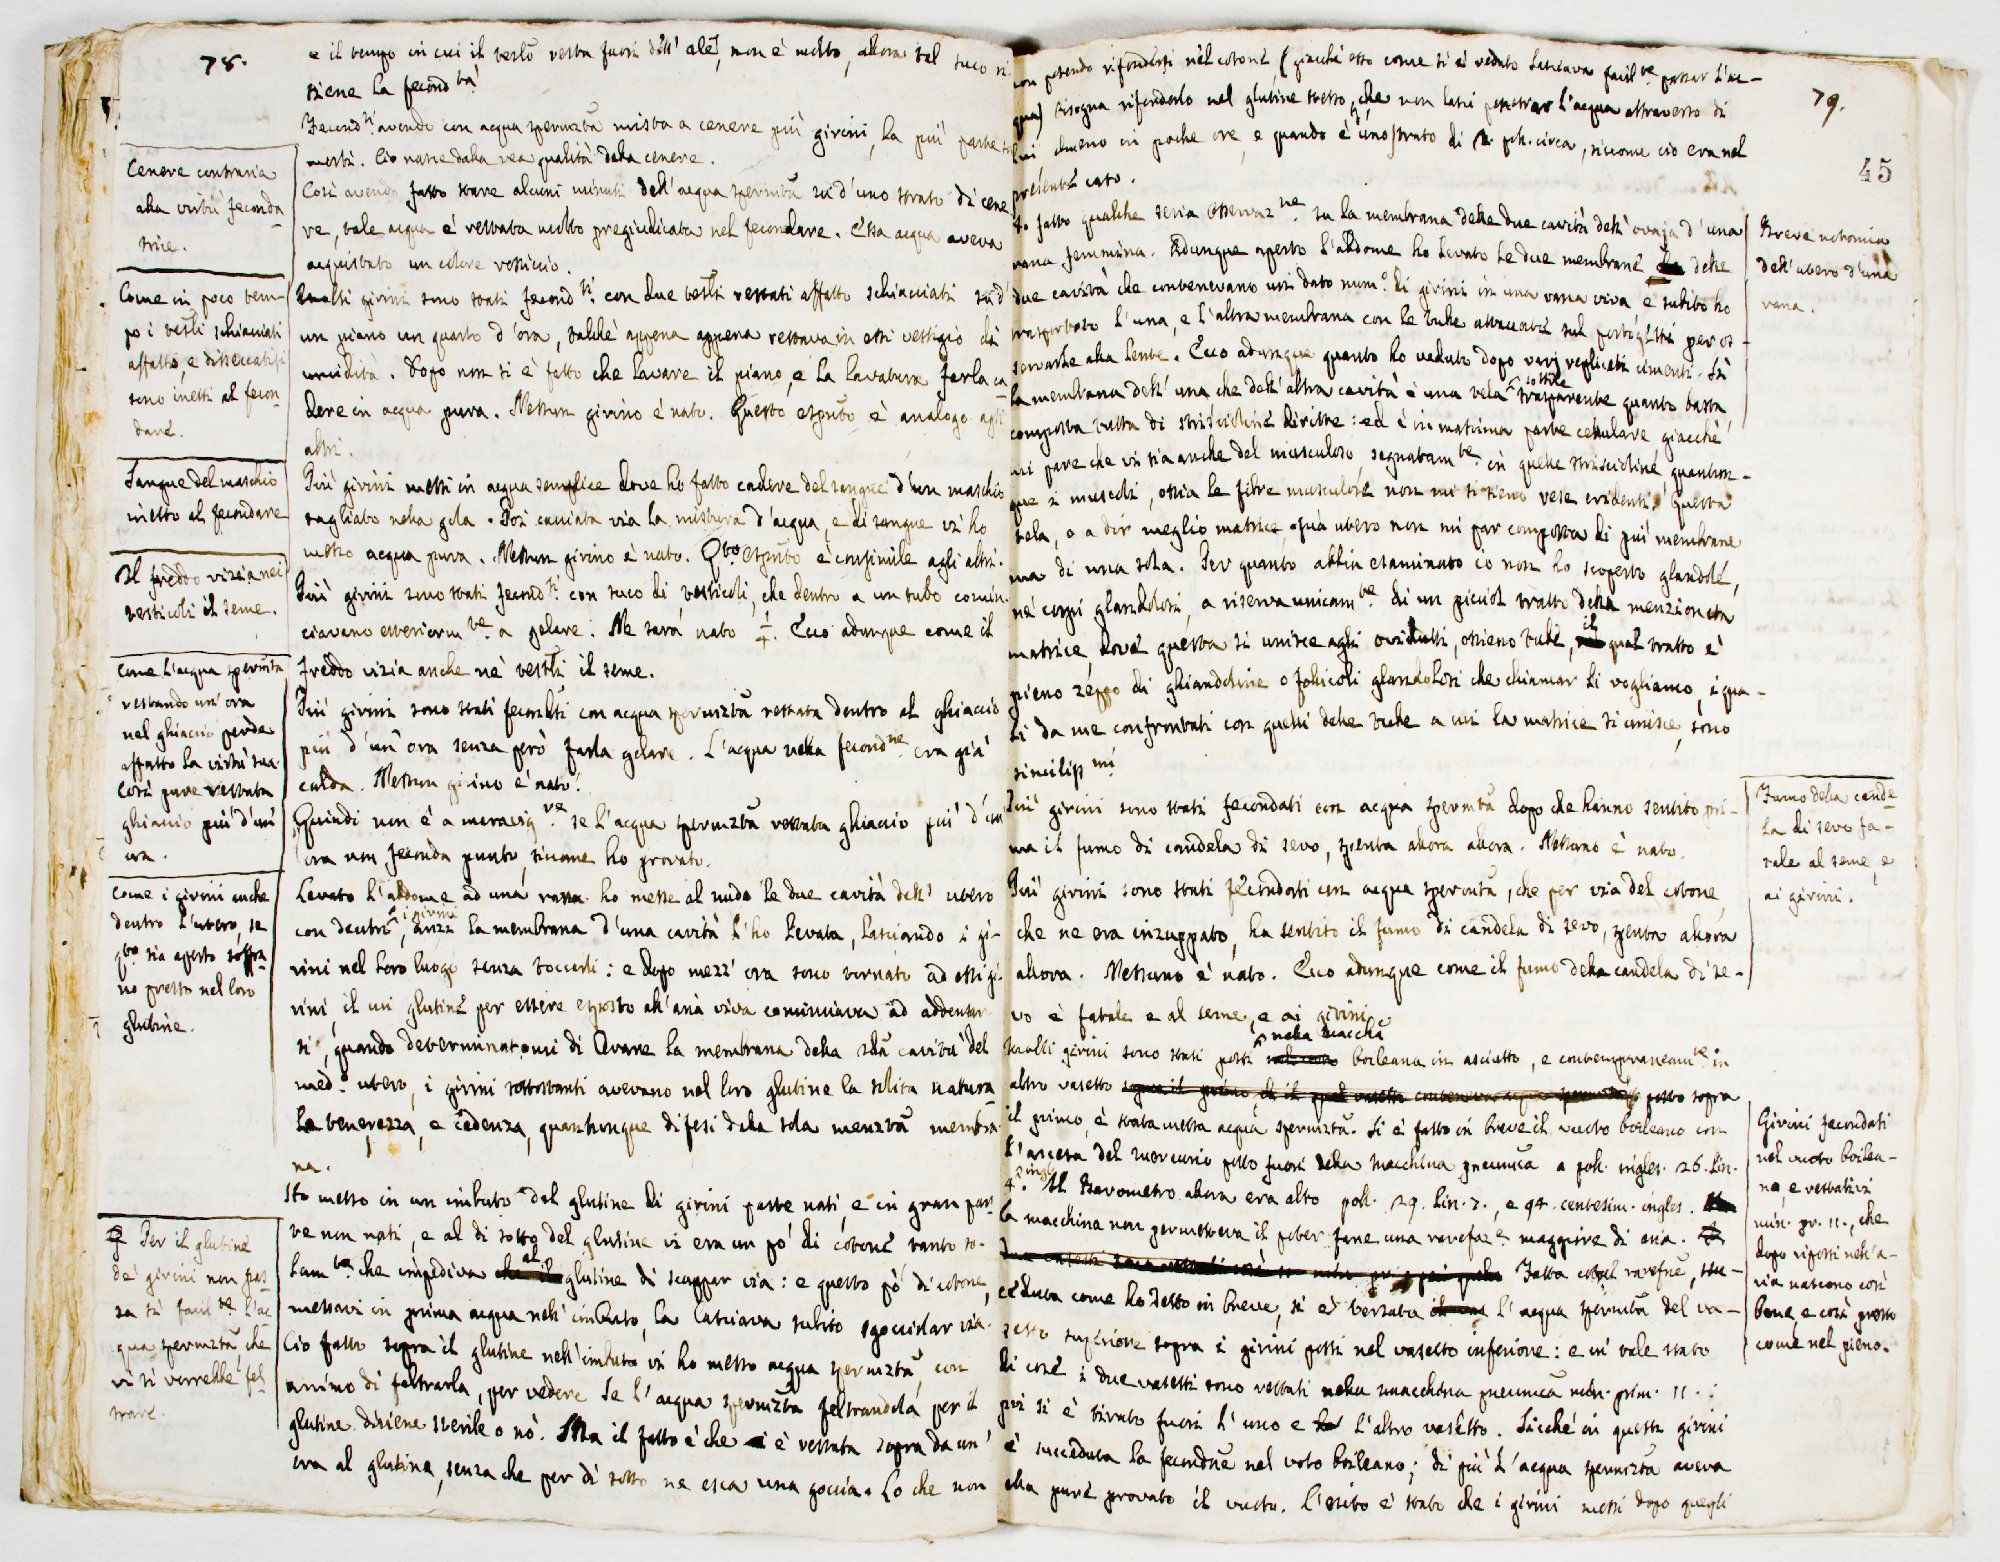 78.
e il tempo in cui il testo resta fuori dell' ale, non è molto, allora tal suco ri-
tiene la fecond.tà
Fecond.ti avendo con acqua spermta mista a cenere più girini, la più parte son
morti. Ciò nasce dalla rea qualità della cenere.
Cenere contraria
alla virtù feconda-
trice.
Così avendo fatto stare alcuni minuti dell' acqua spermta su d' uno strato di cene
re, tale acqua è restata molto pregiudicata nel fecondare. Essa acqua aveva
acquistato un colore rossiccio.
Come in poco tem-
po i testli schiacciati
affatto, e disseccatisi
sono inetti al fecon-
dare.
Molti girini sono stati fecond.ti con due testli restati affatto schiacciati su d'
un piano un quarto d' ora, talchè appena appena restava in essi vestigio di
umidità. Dopo non si è fatto che lavare il piano, e la lavatura farla ca
dere in acqua pura. Nessun girino è nato. Questo espmto è analogo agli
altri.
Sangue del maschio
inetto al fecondare
Più girini messi in acqua semplice dove ho fatto cadere del sangue d' un maschio
tagliato nella gola. Poi cacciata via la mistura d' acqua, e di sangue vi ho
messo acqua pura. Nessun girino è nato. Q.to espmto è consimile agli altri.
Il freddo vizia nei
testicoli il seme.
Più girini sono stati fecond.ti con suco di testicoli, che dentro a un tubo comin-
ciavano esteriorm.te a gelare. Ne sarà nato 1/4. Ecco adunque come il
freddo vizia anche ne' testli il seme.
Come l' acqua spermta
restando un' ora
nel ghiaccio perde
affatto la virtù sua.
Così pure restata
ghiaccio più d' un'
ora.
Più girini sono stati fecondti con acqua spermzta restata dentro al ghiaccio
più d' un' ora senza però farla gelare. L' acqua nella fecond.ne era già
calda. Nessun girino è nato.
Quindi non è a meravig.a se l' acqua spermzta restata ghiaccio più d' un'
ora non feconda punto, siccome ho provato.
Come i girini anche
dentro l' utero, se
q.to sia aperto soffra-
no presto nel loro
glutine.
Levato l' addome ad una rana ho messe al nudo le due cavità dell' utero
con dentro i girini, anzi la membrana d' una cavità l' ho levata, lasciando i gi-
rini nel loro luogo senza toccarli: e dopo mezz' ora sono tornato ad essi gi-
rini, il cui glutine per essere esposto all' aria viva cominciava ad addensar-
si, quando determinatomi di levare la membrana della 2da cavità del
med.o utero, i girini sottostanti avevano nel loro glutine la solita natura
la tenerezza, e cedenza, quantunque difesi dalla sola menzta membra-
na.
Per il glutine
de' girini non pas
sa sì facil.te l' ac
qua spermzta, che
vi si vorrebbe fel-
trare.
Ho messo in un imbuto del glutine di girini parte nati, e in gran par-
te non nati, e al di sotto del glutine vi era un po' di cotone tanto so-
lam.te che impediva al glutine di scappar via: e questo po' di cotone,
messavi in prima acqua nell' imbuto, la lasciava subito sgocciolar via.
Ciò fatto sopra il glutine nell' imbuto vi ho messo acqua spermzta con
animo di feltrarla, per vedere se l' acqua spermzta feltrandola per il
glutine diviene sterile o nò. Ma il fatto è che è restata sopra da un'
ora al glutine, senza che per di sotto ne esca una goccia. Lo che non
79.
45
non potendo rifondersi nel cotone, (giacchè esso come si è veduto lasciava facil.te passar l' ac-
qua) bisogna rifonderlo nel glutine stesso, che non lasci penetrar l' acqua attraverso di
lui almeno in poche ore, e quando è uno strato di poll. circa, siccome ciò era nel
presente caso.
Breve notomia
dell' utero d' una
rana.
Ho fatto qualche seria osservaz.ne su la membrana delle due cavità dell' ovaja d' una
rana femmina. Adunque aperto l' addome ho levato le due membrane delle
due cavità che contenevano un dato num.o di girini in una rana viva e subito ho
trasportato l' una, e l' altra membrana con le tube attaccate sul portoggetti per os-
servarle alla lente. Ecco adunque quanto ho veduto dopo varj replicati cimenti. Sì
la membrana dell' una che dell' altra cavità è una tela sottile trasparente quanto basta
composta tutta di striscioline diritte: ed è in massima parte cellulare giacchè
mi pare che vi sia anche del musculoso, segnatam.te in quelle strisceline quantun-
que i muscoli, ossia le fibre musculose non mi si sieno rese evidenti. Questa
tela, o a dir meglio matrice, ossia utero non mi par composta di più membrane
ma di una sola. Per quanto abbia esaminato io non ho scoperto glandole,
nè corpi glandolosi, a riserva unicam.te di un picciol tratto della menzionata
matrice, dove questa si unisce agli ovidutti, ossieno tube, il qual tratto è
pieno zeppo di ghiandoline o follicoli glandolosi che chiamar li vogliamo, i qua-
li da me confrontati con quelli delle tube a cui la matrice si unisce, sono
similiss.mi
Fumo della cande
la di sevo fa-
tale al seme, e
ai girini.
Più girini sono stati fecondati con acqua spermta dopo che hanno sentito pri-
ma il fumo di candela di sevo, spenta allora allora. Nessuno è nato.
Più girini sono stati fecondati con acqua spermta, che per via del cotone
che ne era inzuppato, ha sentito il fumo di candela di sevo, spenta allora
allora. Nessuno è nato. Ecco adunque come il fumo della candela di se-
vo è fatale e al seme, e ai girini.
Girini fecondati
nel vuoto boilea-
no, e restativi
min. pr. 11., che
dopo riposti nell' a-
ria nascono così
bene, e così presto
come nel pieno.
Molti girini sono stati posti nella macchã boileana in asciutto, e contemporaneam.te in
altro vasetto posto sopra
il primo, è stata messa acqua spermzta. Si è fatto in breve il vuoto boileano con
l' ascesa del mercurio posto fuori della macchina pneumca a poll. ingles. 26. lin.
4. ingl. Il Barometro allora era alto poll. 29. lin. 7., e 94. centesim. ingles.
La macchina non permetteva il poter fare una rarefaz.e maggiore di aria.
Fatta cotal rarefne, suc-
ceduta come ho detto in breve, si è versata l' acqua spermta del va-
setto superiore sopra i girini posti nel vasetto inferiore: e in tale stato
di cose i due vasetti sono restati nella macchina pneumca min. prim. 11.:
poi si è tirato fuori l' uno e l' altro vasetto. Sicchè in questi girini
è succeduta la fecondne nel voto boileano; di più l' acqua spermzta aveva
ella pure provato il vuoto. L' esito è stato che i girini messi dopo quegli